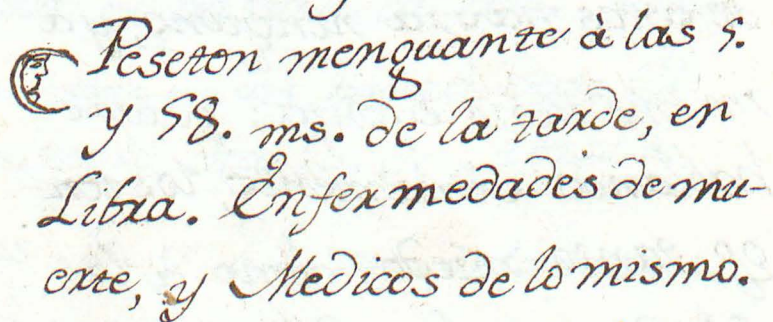 Peseton menguante à las 5.
y 58. ms. de la tarde, en
Libra. Enfermedades de mu-
erte, y Medicos de lo mismo.